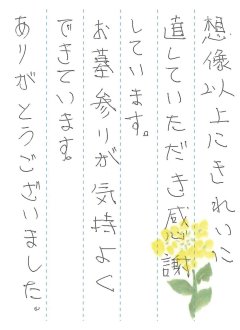 想像以上にきれいに
直していただき感謝
しています。
お墓参りが気持よく
できています。
ありがとうございました。